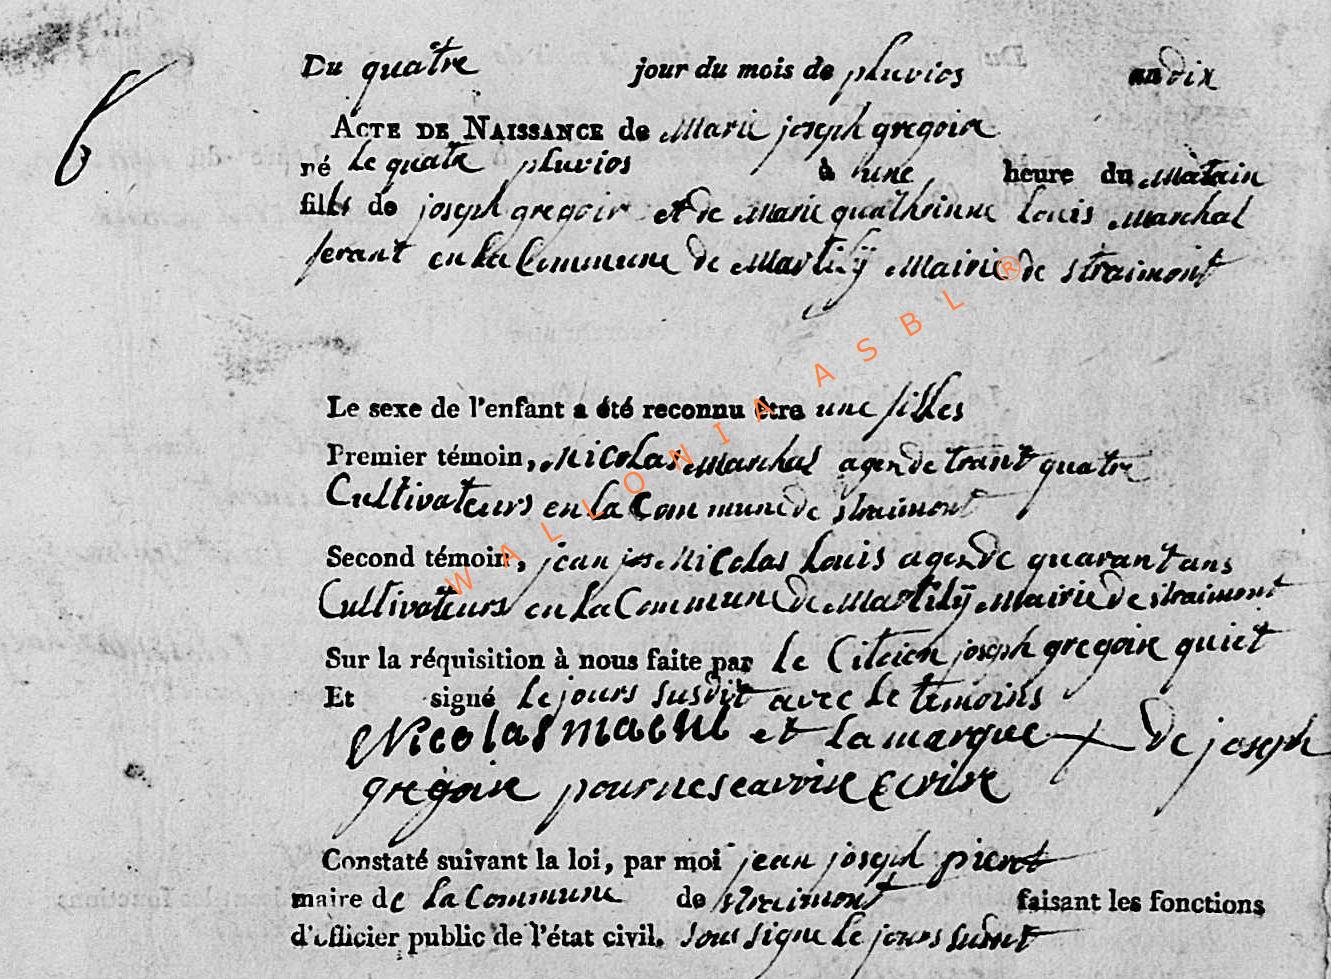 6
Du quatre jour du mois de pluvios an dix
ACTE DE NAISSANCE de Marie joseph gregoire
né le quatre pluvios à une heure du Matain
filles de joseph gregoir et de Marie quathrinne Louis Marchal
ferant en La Commune de Martilÿ Mairie de straimont
Le sexe de l'enfant a été reconnu être une filles
Premier témoin, Nicolas Marchal agen de trant quatre
Cultivateurs en La Commune de straimont
Second témoin, jean jos. Nicolas Louis agen de quarant ans
Cultivateurs en La Commune de Martilÿ Mairie de straimont
Sur la réquisition à nous faite par le Citoien joseph gregoire qui et
Et signé le jours susdit avec le temoins
Nicolas et la marque + de joseph
gregoire pour ne seavoire Ecrire
Constaté suivant la loi, par moi jean joseph pieret
maire de La Commune de straimont faisant les fonctions
d'officier public de l'état civil. sous signe le jours susdit
WALLONIA ASBL ®